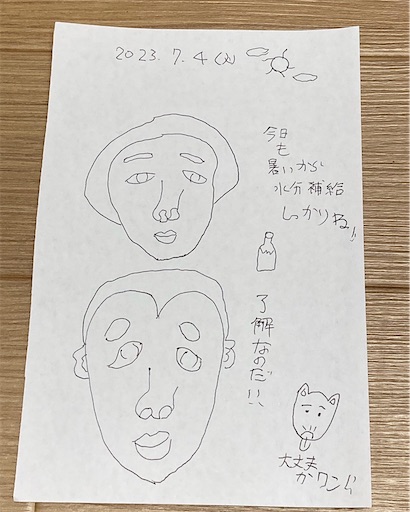 2023.7.4(火)
今日
も
暑いから
水分補給
しっかりね!!
了解なのだ!!
大丈夫
かワン!!